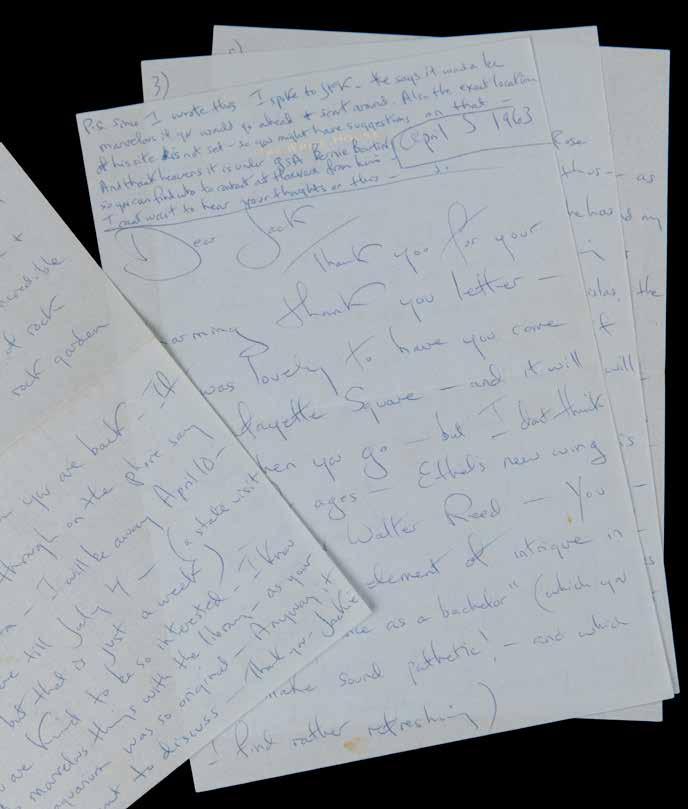 P.S. Since I wrote this I spoke to JFK – He says it would be
marvelous if you would go ahead & scout around. Also the exact location
of his site is not set – so you might have suggestions on that –
And thank heavens it is under GSA Bernie Boutin
so you can find who to contact at Harvard from him –
I cant wait to hear your thoughts on this –
April 5 1963
Dear Jack
Thank you for your
arming thank you letter –
was lovely to have you come
fayette Square – and it will
hen you go – but I dont think
ages – Ethel's new wing is
Walter Reed – You
element of intrigue in
as a bachelor" (which you
make sound pathetic! – and which
I find rather refreshing)
3)
Rose
thus – as
he has
my
the
will
&
incredible
of rock
rock garden
you are back – If
through on the phone say
– I will be away April 10 –
till July 4 – (a state visit
but that is just a week)
are kind to be so interested – I know
marvelous things with the library – as your
aquarium was so original – Anyway it
to discuss – Thank you – Jackie